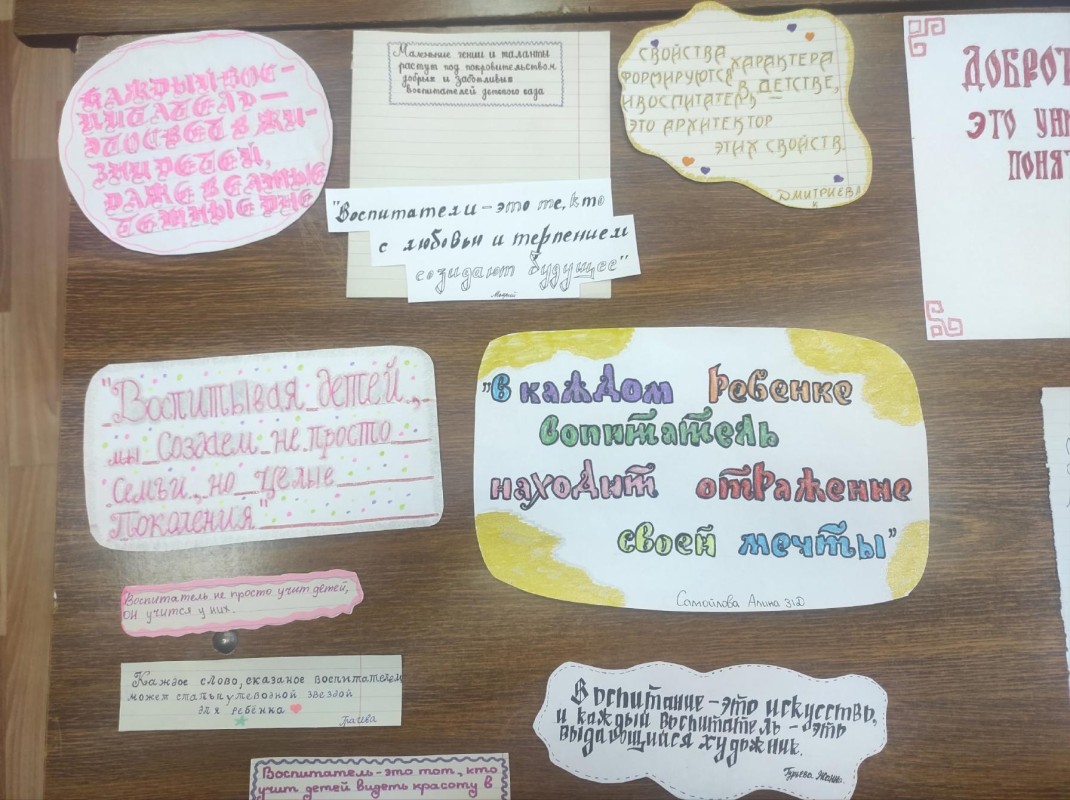 КАЖДЫЙ ВОС-
ПИТАТЕЛЬ —
ЭТО СВЕТ В ЖИ-
ЗНИ ДЕТЕЙ,
ДАЖЕ В САМЫЕ
ТЕМНЫЕ ДНИ
Маленькие гении и таланты
растут под покровительством
добрых и заботливых
воспитателей детского сада
"Воспитатели – это те, кто
с любовью и терпением
созидают будущее"
СВОЙСТВА ХАРАКТЕРА
ФОРМИРУЮТСЯ В ДЕТСТВЕ,
И ВОСПИТАТЕЛЬ —
ЭТО АРХИТЕКТОР
ЭТИХ СВОЙСТВ.
ДМИТРИЕВА
К
ДОБРОТ
ЭТО УНИ
ПОНЯТ
"Воспитывая детей,
мы создаем не просто
семьи, но целые
поколения"
"В каждом ребенке
вопитатель
находит отражение
своей мечты"
Самойлова Алина 31Д
Воспитатель не просто учит детей,
он учится у них.
Каждое слово, сказаное воспитателем
может стать путеводной звездой
для ребёнка
Воспитание – это искусство,
и каждый воспитатель – это
выдающийся художник.
Воспитатель – это тот, кто
учит детей видеть красоту в